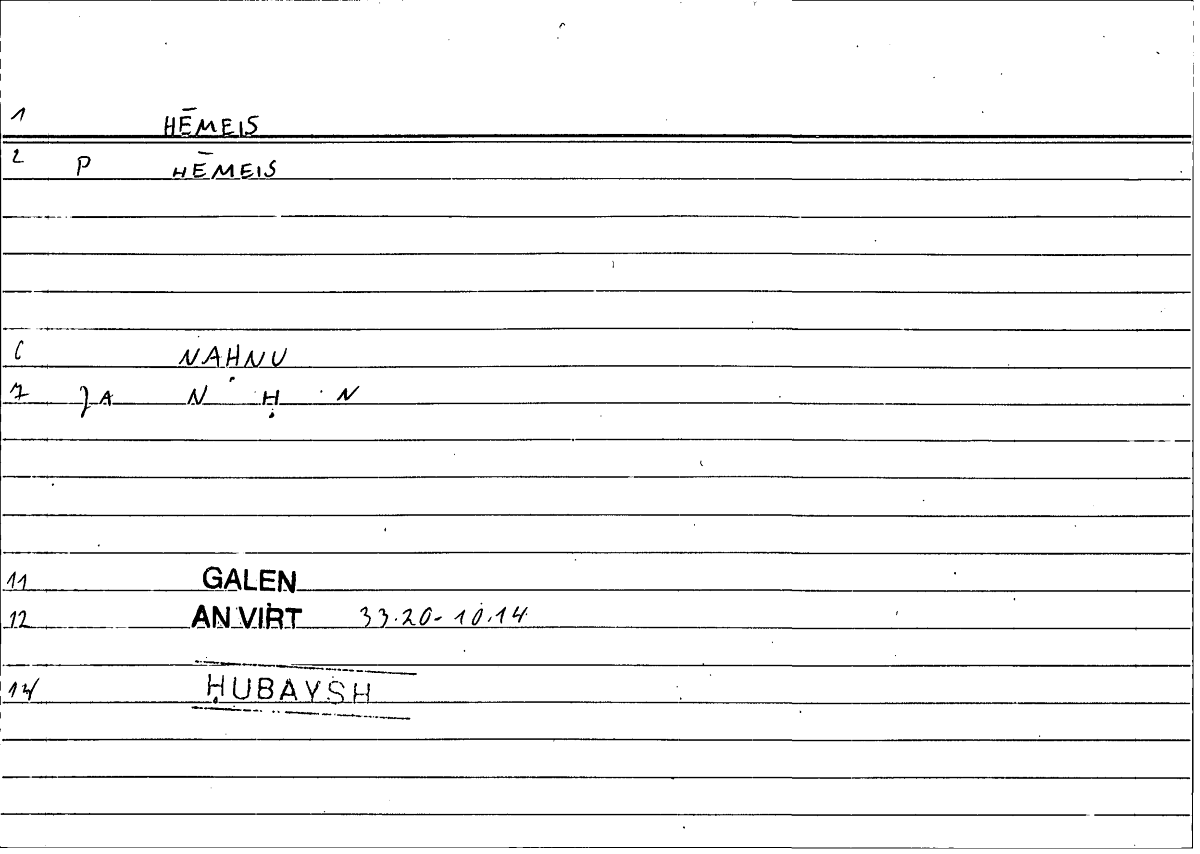 1 HĒMEIS
2 P HĒMEIS
6 NAḤNU
7 JA N Ḥ N
11 GALEN
12 AN VIRT 33.20-10.14
14 ḤUBAYSH